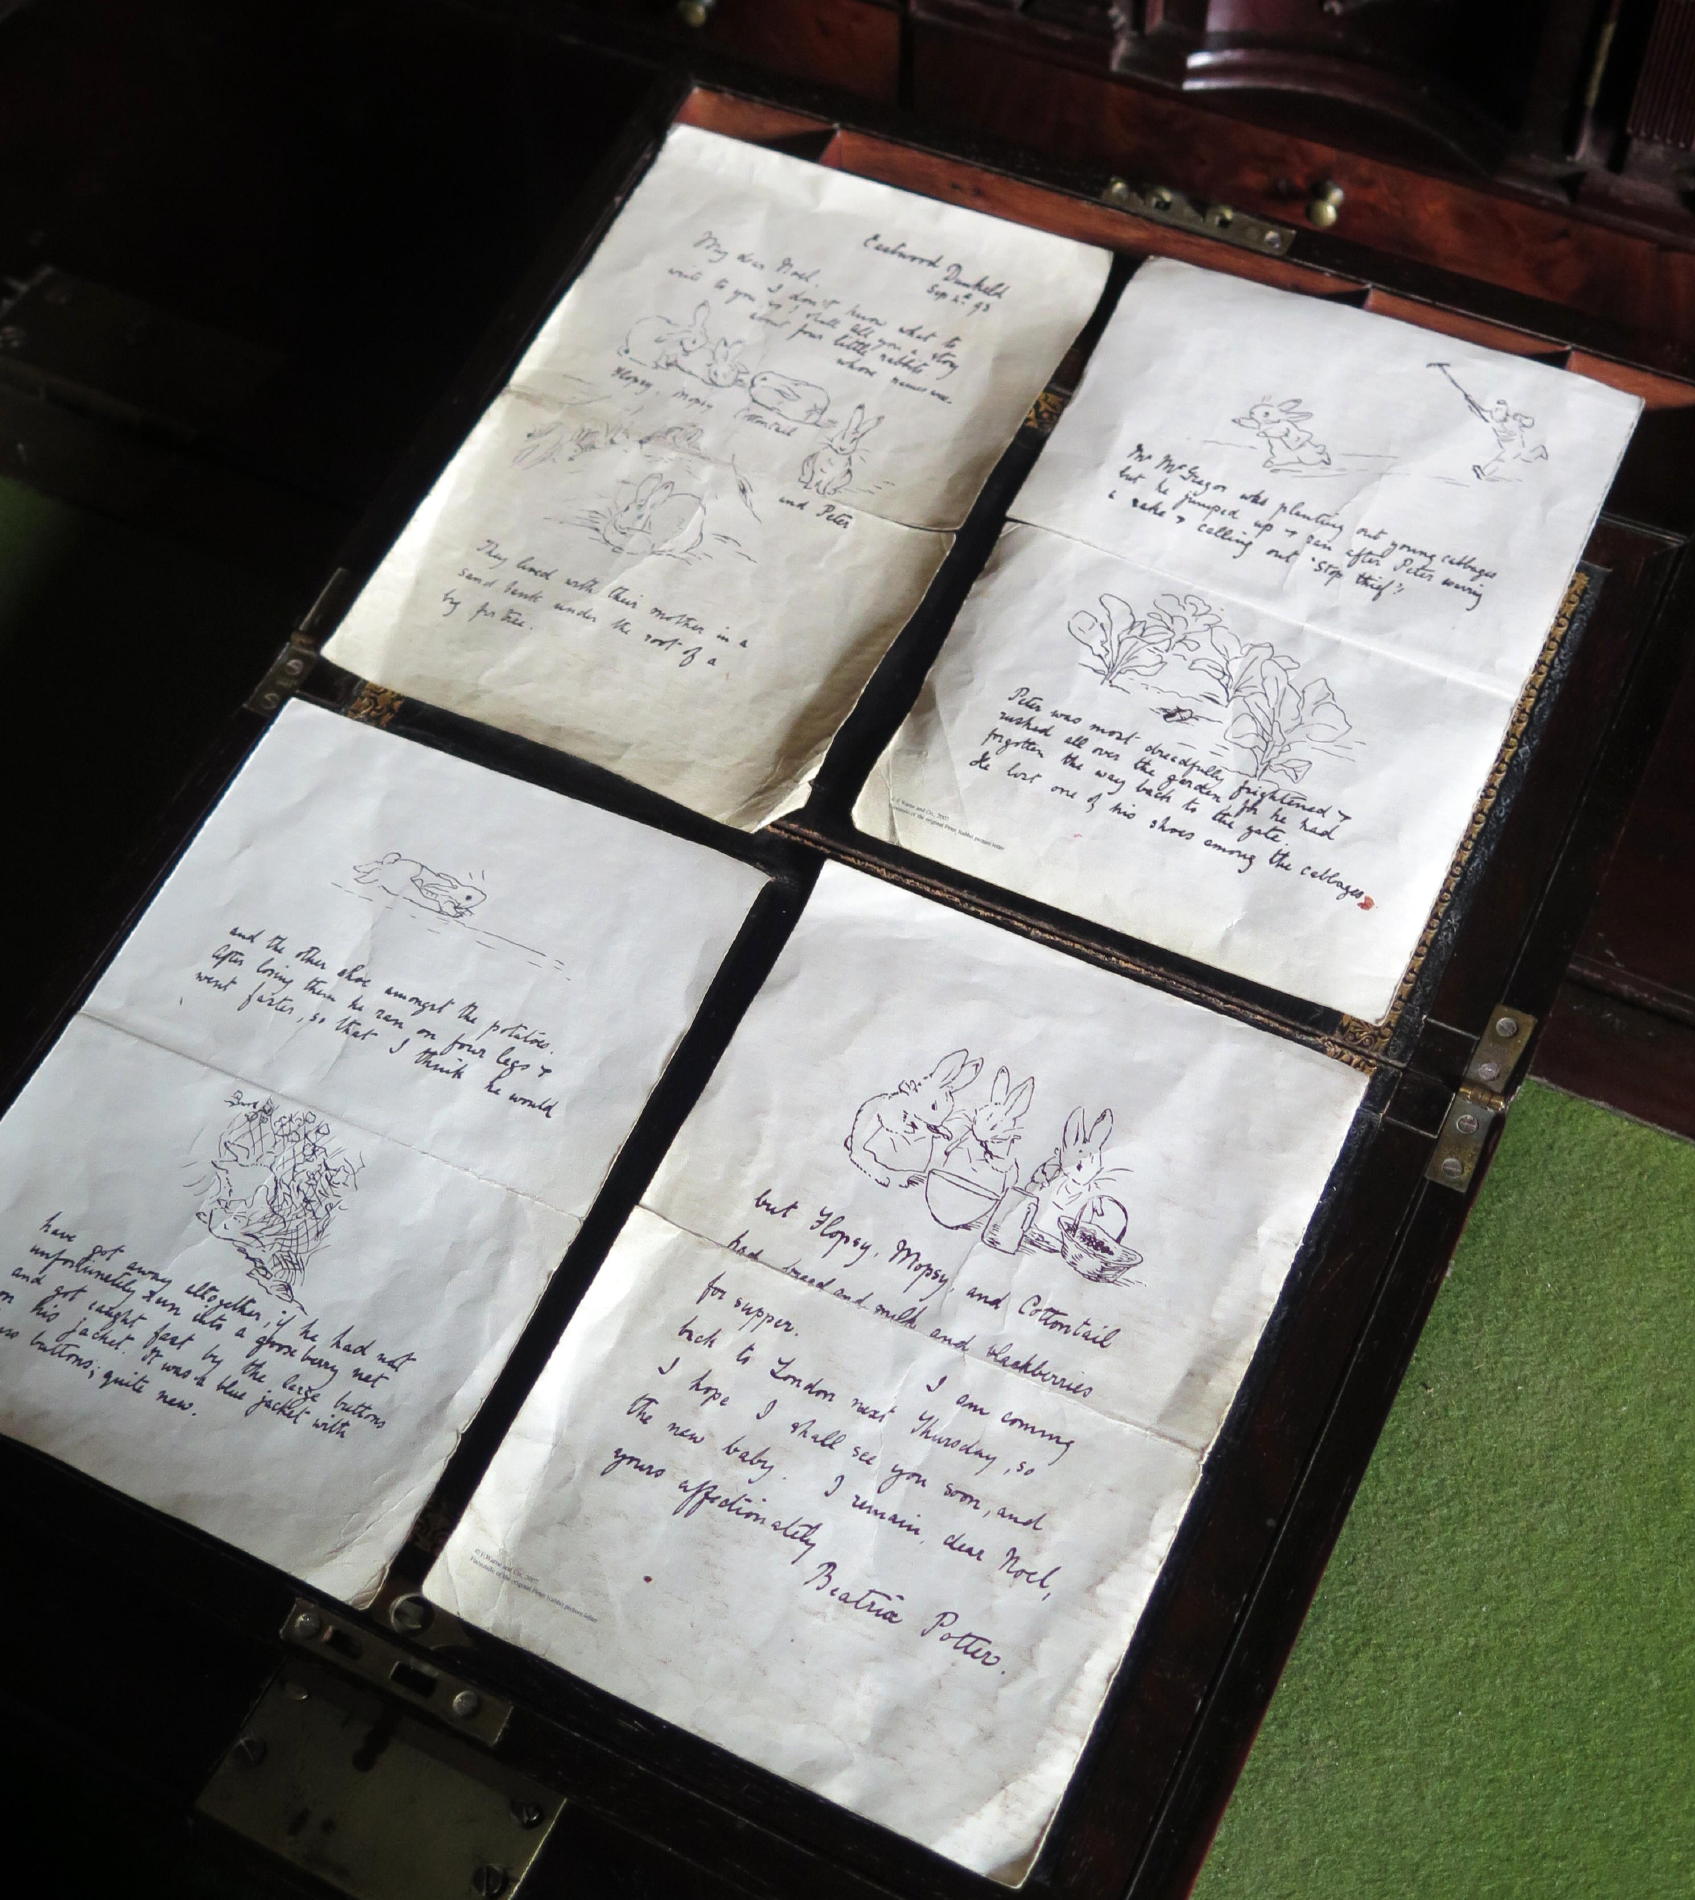 Eastwood Dunkeld
Sep 4th 93
My dear Noel,
I don't know what to
write to you, so I shall tell you a story
about four little rabbits
whose names were
Flopsy, Mopsy Cottontail
and Peter
They lived with their mother in a
sand bank under the root of a
big fir tree.
Mr McGregor was planting out young cabbages
but he jumped up & ran after Peter waving
a rake & calling out 'Stop thief'!
Peter was most dreadfully frightened &
rushed all over the garden, for he had
forgotten the way back to the gate.
He lost one of his shoes among the cabbages
© F. Warne and Co., 2007
Facsimile of the original Peter Rabbit picture letter
and the other shoe amongst the potatoes.
After losing them he ran on four legs &
went faster, so that I think he would
have got away altogether, if he had not
unfortunately run into a gooseberry net
and got caught fast by the large buttons
on his jacket. It was a blue jacket with
buttons; quite new.
but Flopsy, Mopsy, and Cottontail
had bread and milk and blackberries
for supper. I am coming
back to London next Thursday, so
I hope I shall see you soon, and
the new baby. I remain, dear Noel,
yours affectionately
Beatrix Potter.
© F. Warne and Co., 2007
Facsimile of the original Peter Rabbit picture letter